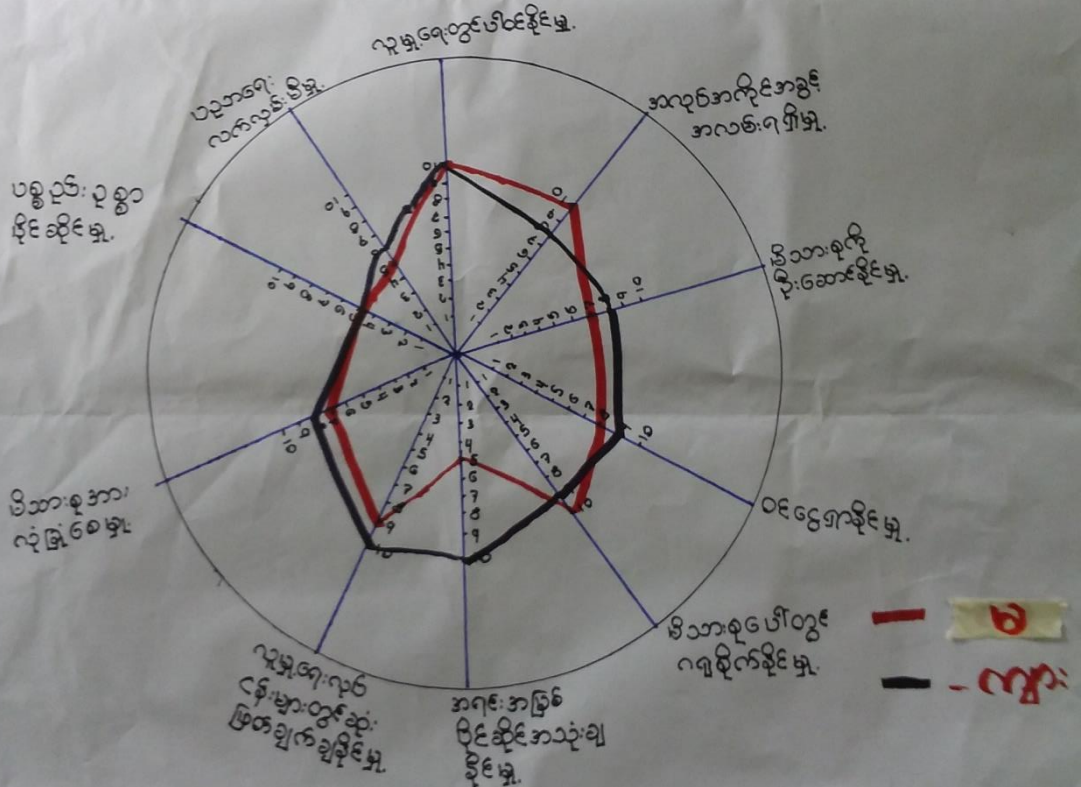 လူမှုရေးတွင်ပါဝင်နိုင်မှု့
အလုပ်အကိုင်အခွင့်
အလမ်းရရှိမှု့
မိသားစုကို
ဦးဆောင်နိုင်မှု့
ဝင်ငွေရှာနိုင်မှု့
မိသားစုပေါ်တွင်
ဂရုစိုက်နိုင်မှု့
အရင်းအမြစ်
ပိုင်ဆိုင်အသုံးချ
နိုင်မှု့
လူမှုရေးလုပ်
ငန်းများတွင်ဆုံး
ဖြတ်ချက်ချနိုင်မှု့
မိသားစုအား
လုံခြုံစေမှု့
ပစ္စည်းဥစ္စာ
ပိုင်ဆိုင်မှု့
ပညာရေး
လက်လှမ်းမီမှု့
မ
- ကျား